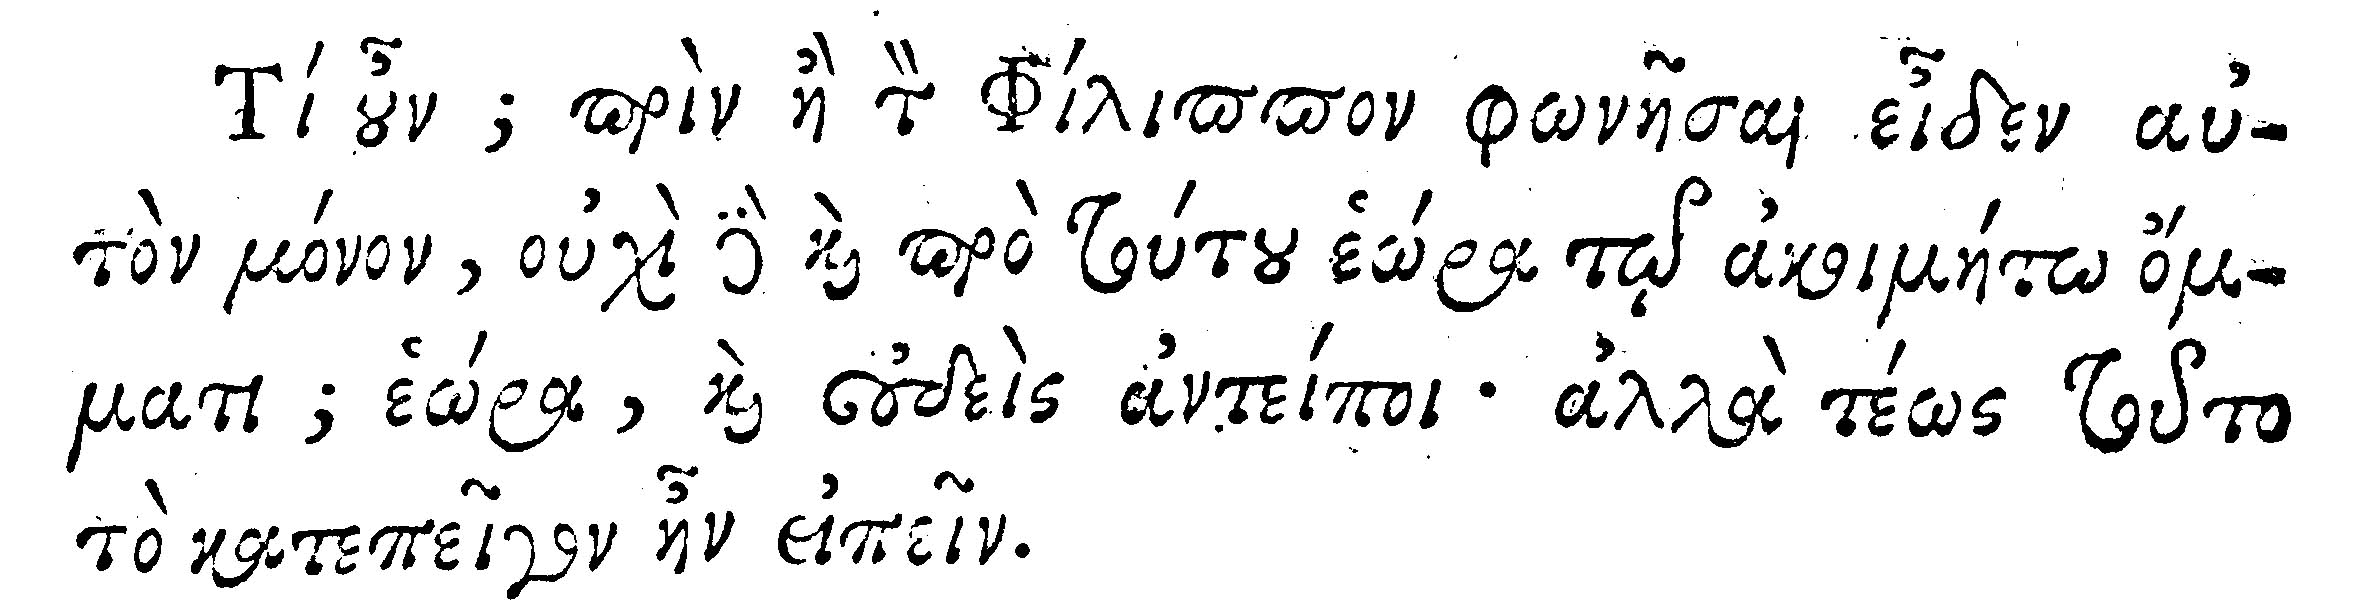 Τί οὖν; πρὶν ἢ τὸν Φίλιππον φωνῆσαι εἶδεν αὐ-
τὸν μόνον, οὐχὶ δὲ καὶ πρὸ τούτου ἑώρα τῷ ἀκοιμήτω ὄμ-
ματι; ἑώρα, καὶ οὐδεὶς ἀντείποι· ἀλλὰ τέως τοῦτο
τὸ κατεπεῖγον ἦν εἰπεῖν.